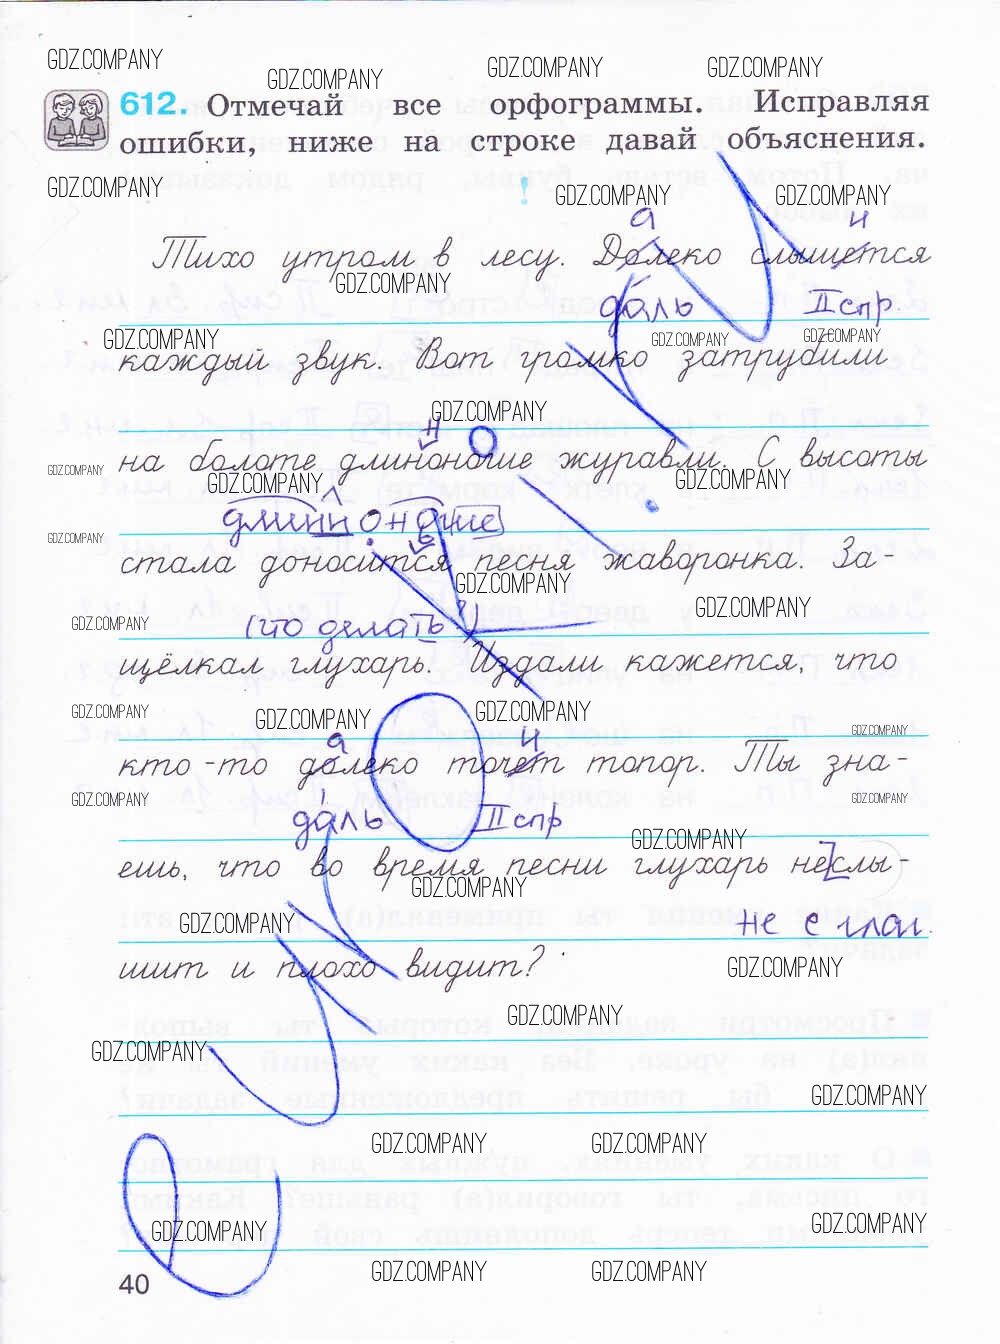 GDZ.COMPANY
GDZ.COMPANY GDZ.COMPANY GDZ.COMPANY
612. Отмечай все орфограммы. Исправляя
ошибки, ниже на строке давай объяснения.
GDZ.COMPANY ! GDZ.COMPANY GDZ.COMPANY
а и
Тихо утром в лесу. Далеко слышется
GDZ.COMPANY
даль II спр.
GDZ.COMPANY GDZ.COMPANY GDZ.COMPANY
каждый звук. Вот громко затрубили
GDZ.COMPANY
н
на болоте длиноногие журавли. С высоты
GDZ.COMPANY GDZ.COMPANY GDZ.COMPANY
длинноногие
GDZ.COMPANY
ь
стала доносится песня жаворонка. За-
GDZ.COMPANY GDZ.COMPANY
GDZ.COMPANY (что делать?)
щёлкал глухарь. Издали кажется, что
GDZ.COMPANY GDZ.COMPANY GDZ.COMPANY
GDZ.COMPANY
а и
кто-то долеко точет топор. Ты зна-
GDZ.COMPANY GDZ.COMPANY
даль II спр
GDZ.COMPANY
ешь, что во время песни глухарь неслы-
GDZ.COMPANY
GDZ.COMPANY не с глаг.
шит и плохо видит?
GDZ.COMPANY
GDZ.COMPANY
GDZ.COMPANY
GDZ.COMPANY
GDZ.COMPANY GDZ.COMPANY
GDZ.COMPANY GDZ.COMPANY
GDZ.COMPANY GDZ.COMPANY
40